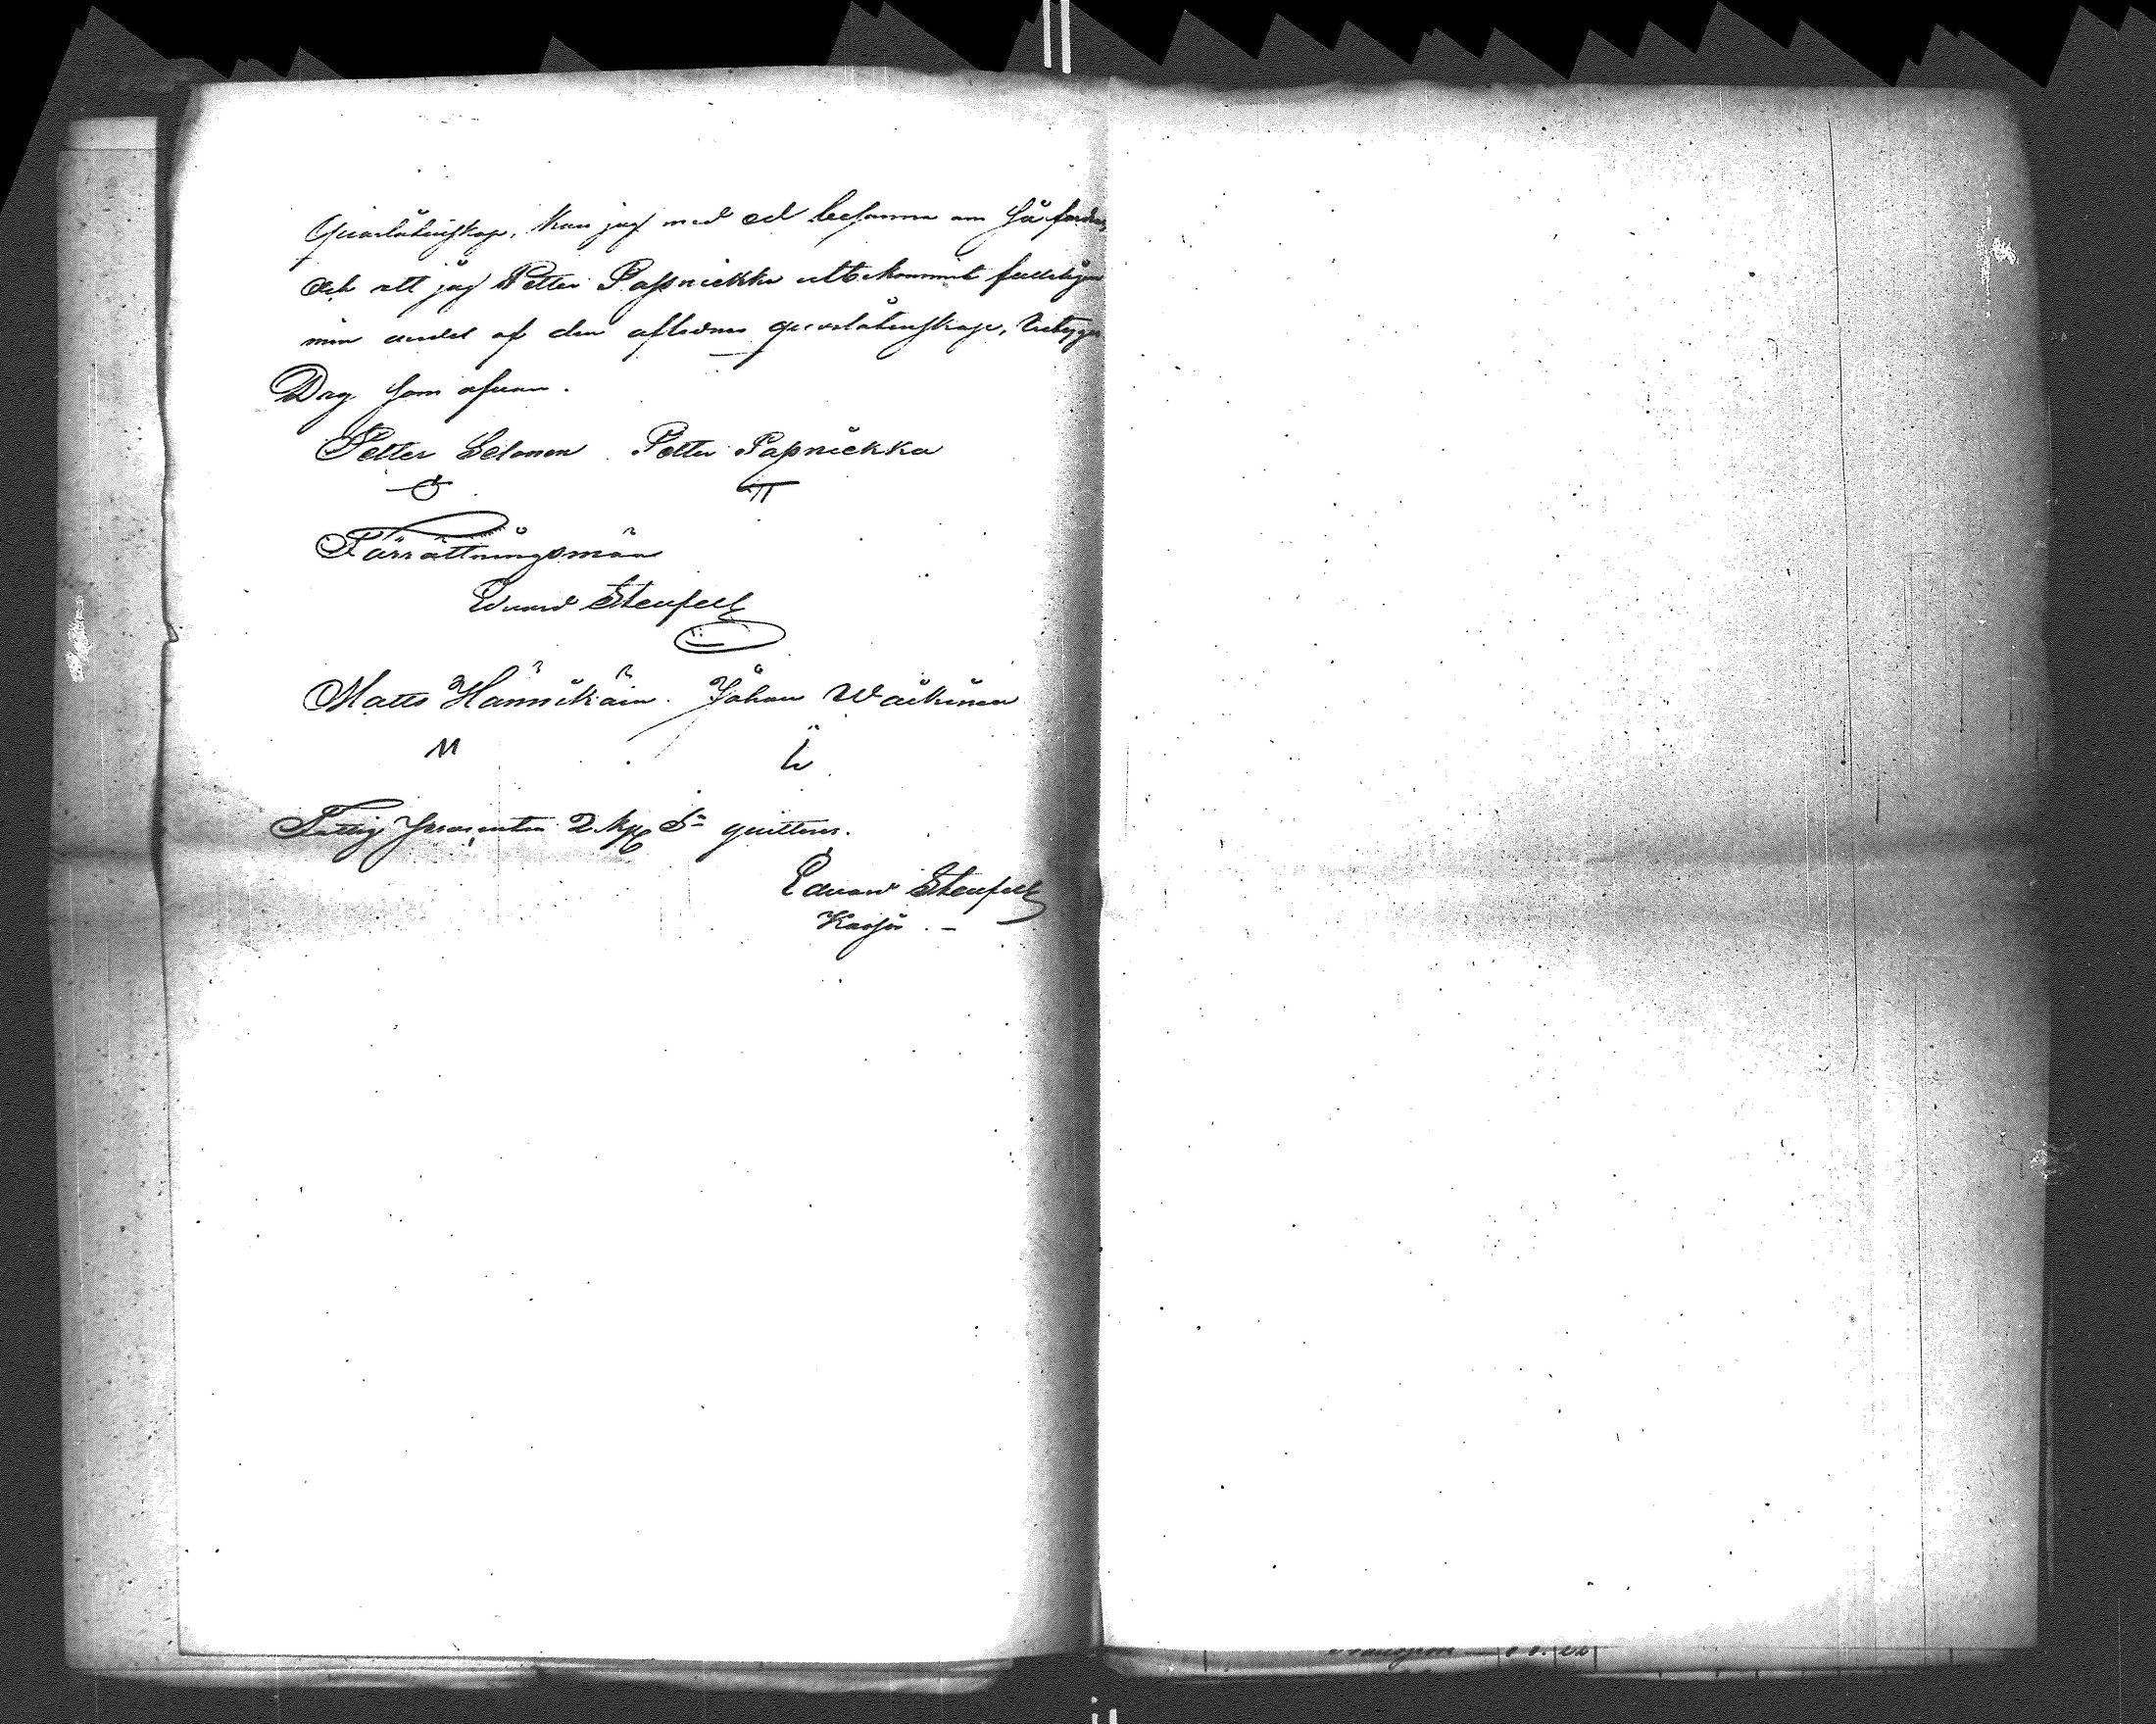 Qvarlåtenskap, kan jag med ed besanna om så fordras,
Och att jag Petter Papnickka utbekommit fulleligen
min andel af den aflednes qvarlåtenskap, betygar
Dag som ofvan.
Petter Selonen Petter Papnickka
Förrättningsmän
Eduard Stenfelt
Matts Hännikäin. Johan Wäikinen
M
Fattig Procenten 2 Mk qvitteras.
Eduard Stenfelt
Kassör